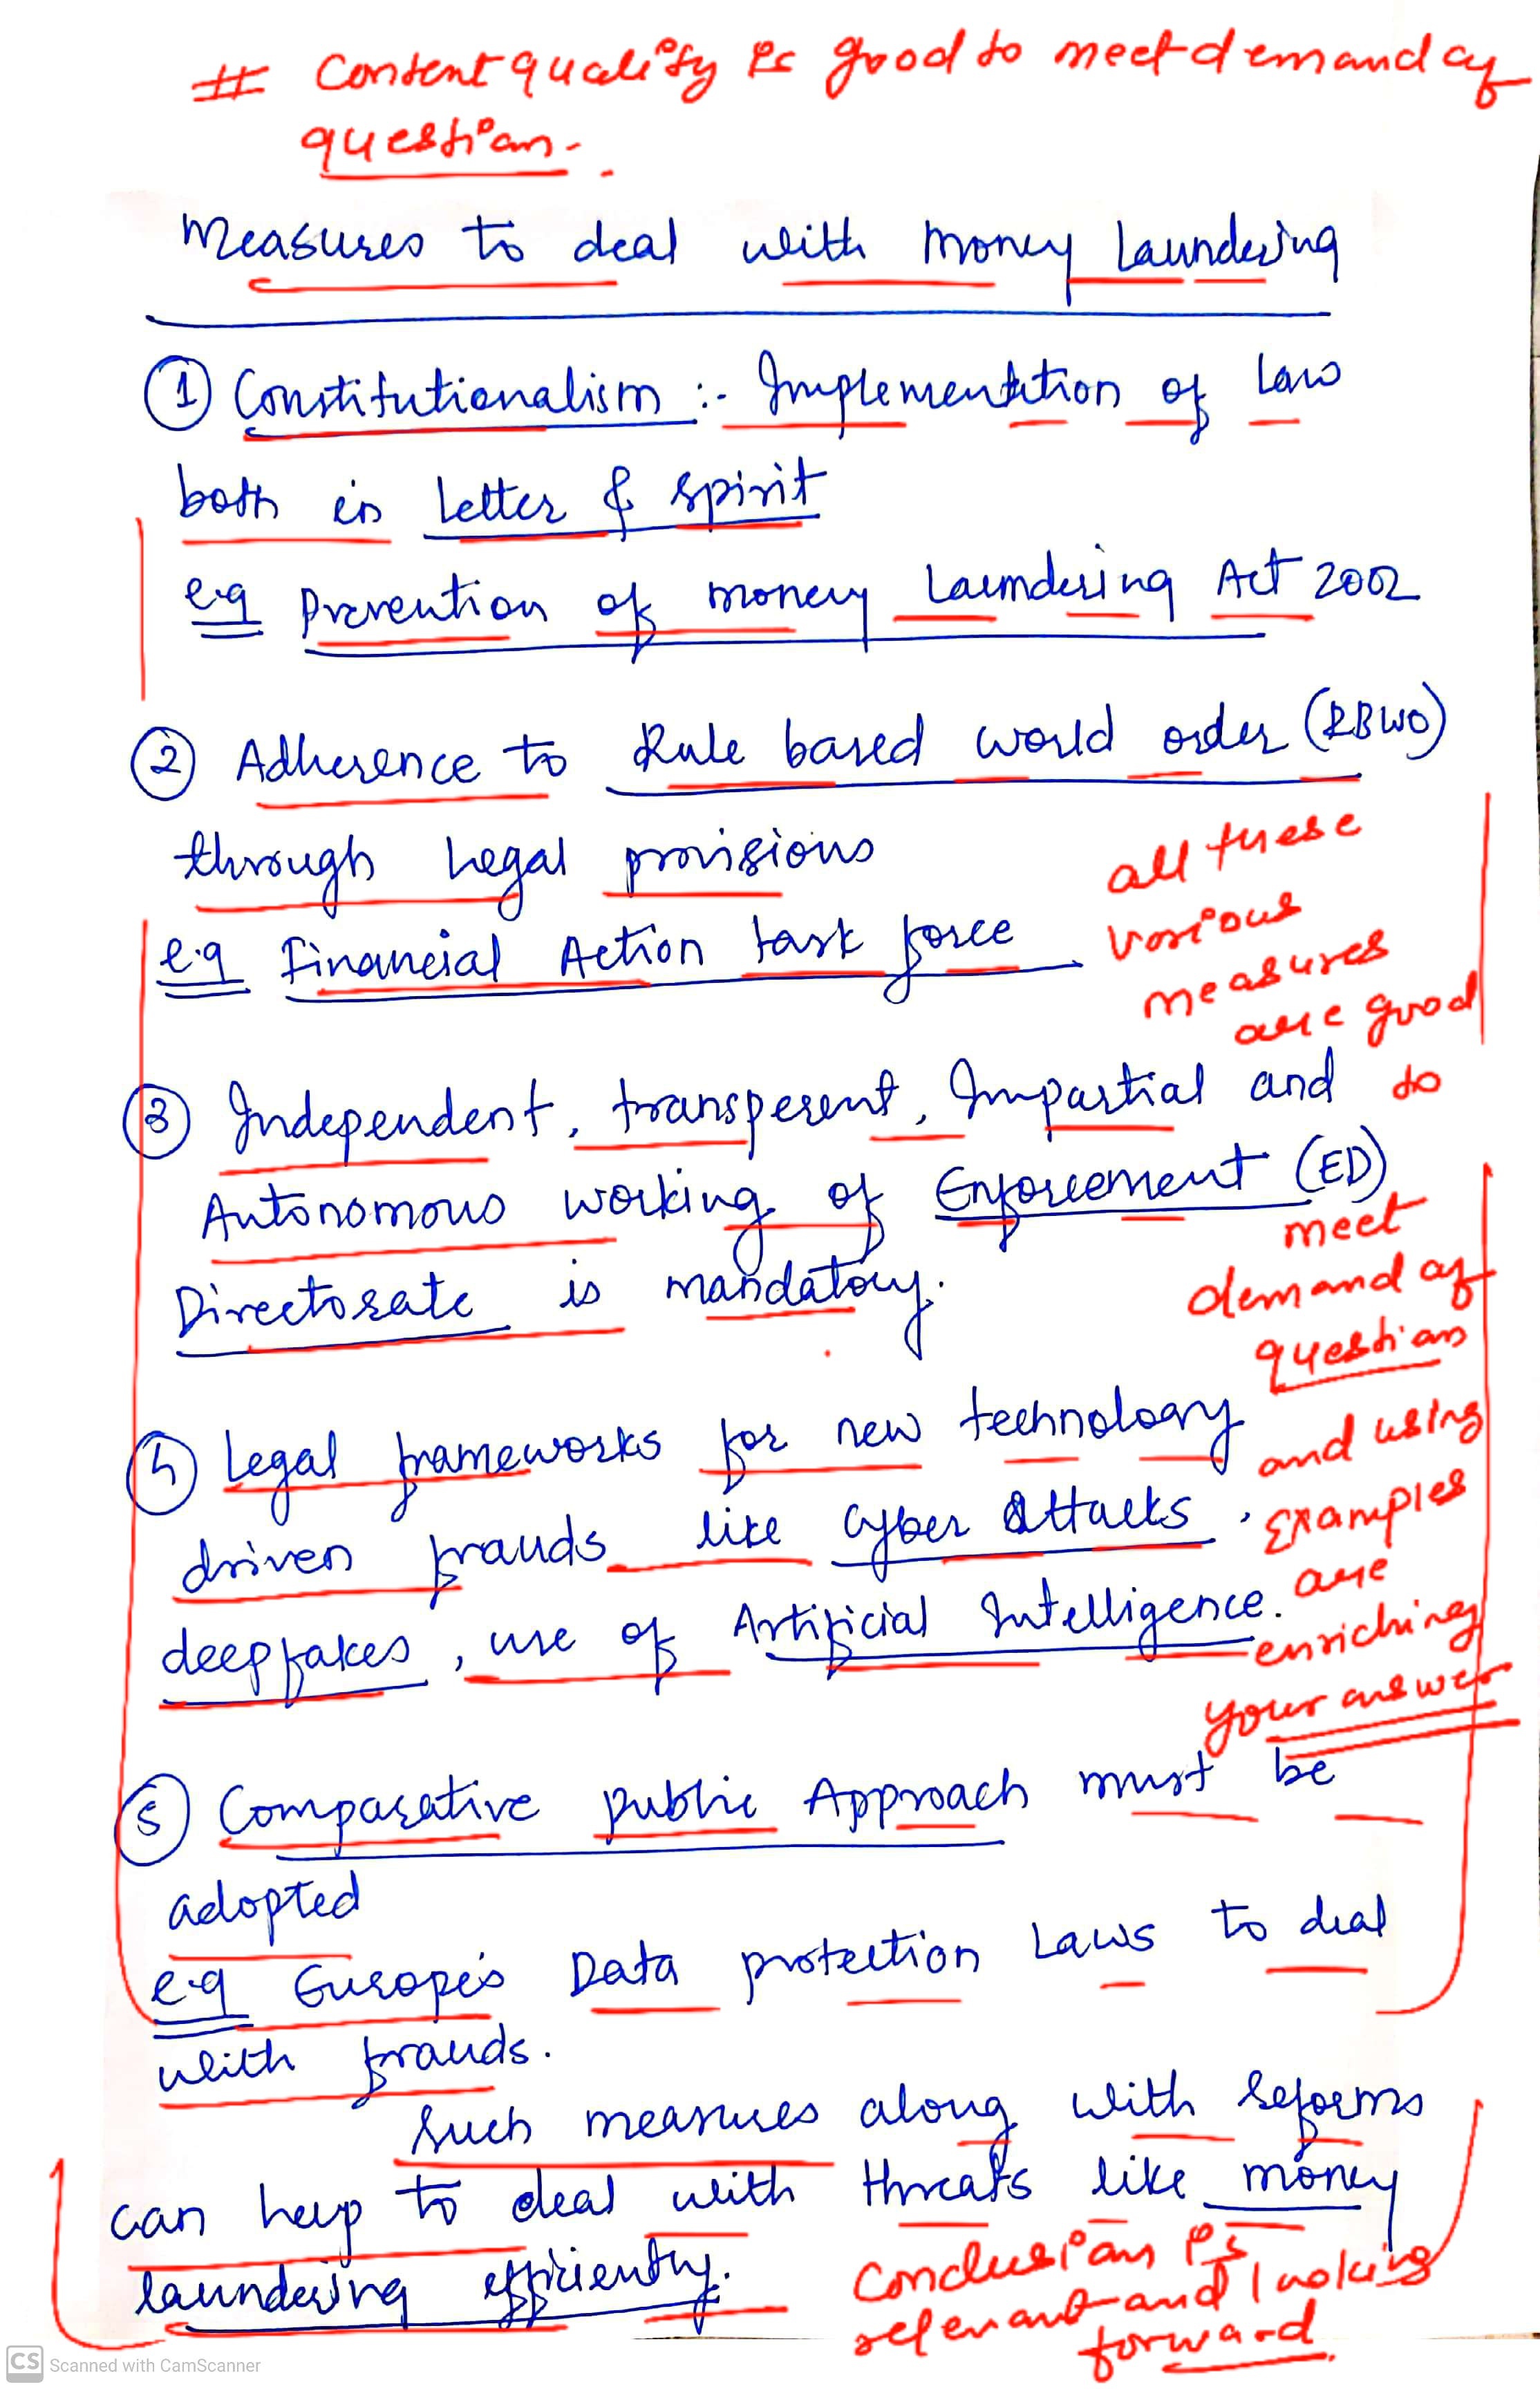 # Content quality is good to meet demand of
question.
Measures to deal with money Laundering
① Constitutionalism :- Implementation of law
both in letter & spirit
e.g Prevention of money Laundering Act 2002
② Adherence to Rule based world order (RBWO)
through legal provisions
e.g Financial Action task force
all these
various
measures
are good
to
meet
demand of
question
and using
examples
are
enriching
your answer
③ Independent, transperent, Impartial and
Autonomous working of Enforcement (ED)
Directorate is mandatory.
④ Legal frameworks for new technology
driven frauds like cyber Attacks,
deepfakes, use of Artificial Intelligence.
⑤ Comparative public Approach must be
adopted
e.g Europe's Data protection Laws to deal
with frauds.
Such measures along with reforms
can help to deal with threats like money
laundering efficiently.
Conclusion is
relevant and looking
forward.
CS Scanned with CamScanner